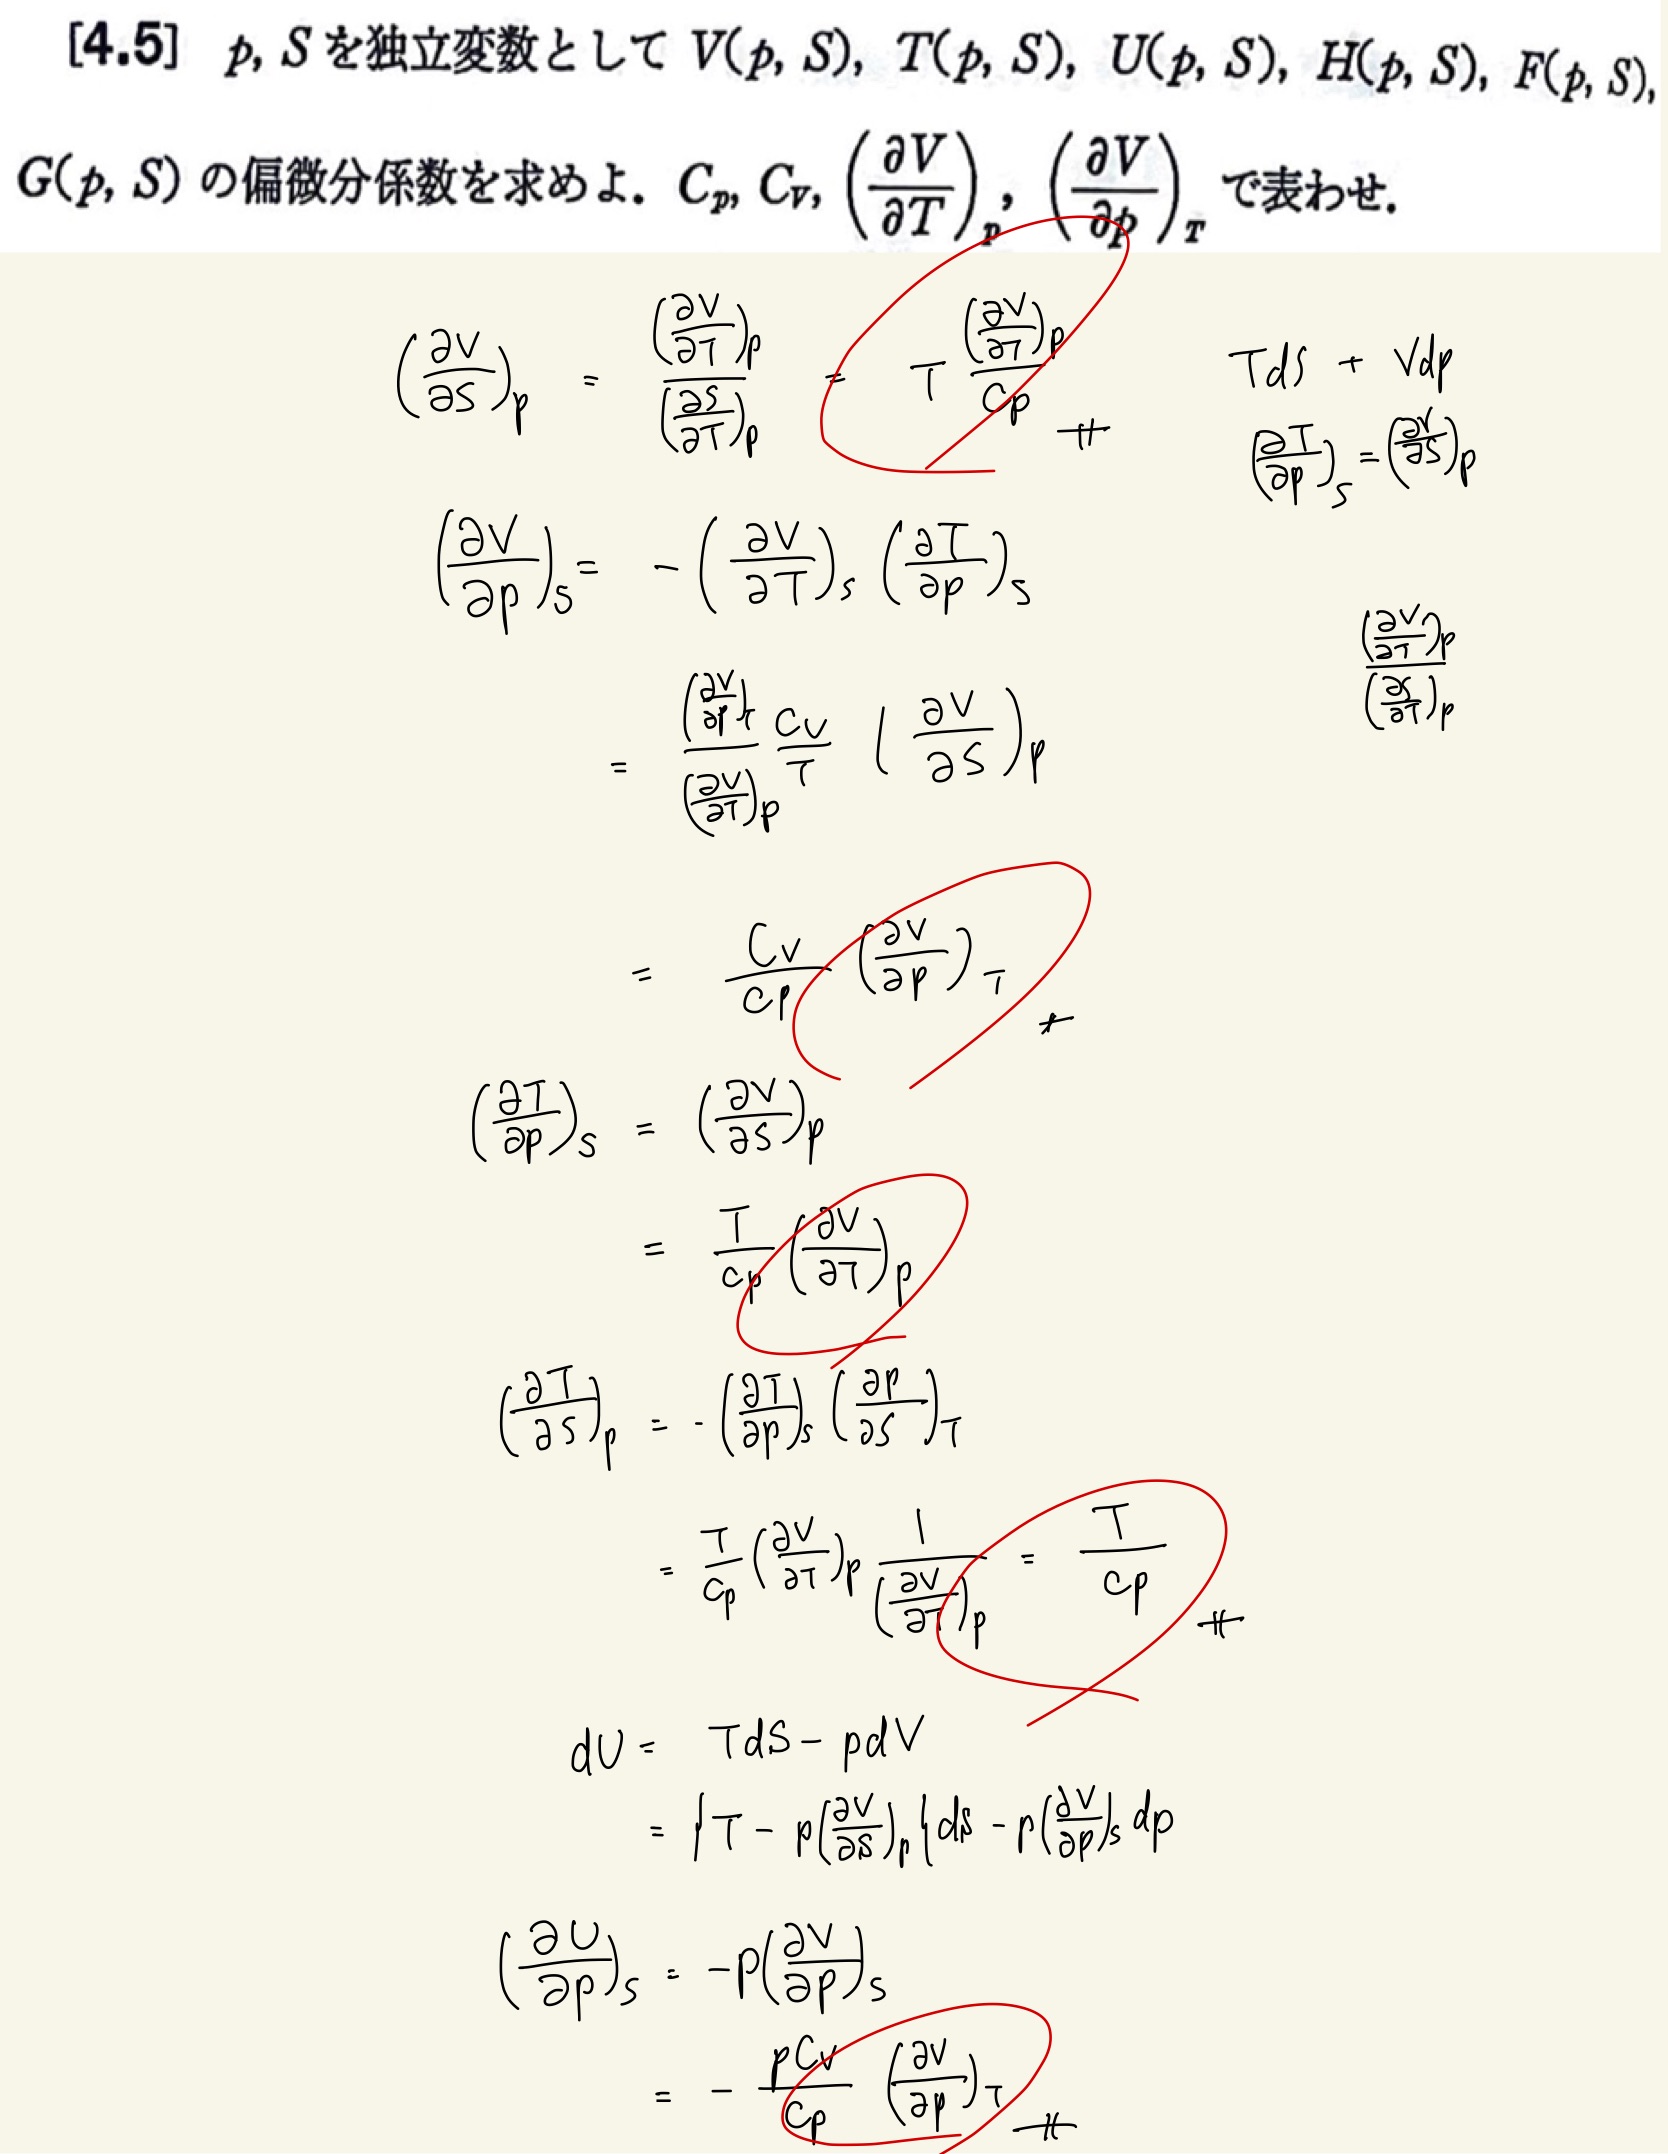 [4.5] p, S を独立変数として V(p, S), T(p, S), U(p, S), H(p, S), F(p, S),
G(p, S) の偏微分係数を求めよ. C_p, C_V, (∂V/∂T)_p, (∂V/∂p)_T で表わせ.
(∂V/∂S)_p = (∂V/∂T)_p / (∂S/∂T)_p = T (∂V/∂T)_p / Cp
TdS + Vdp
(∂T/∂p)_S = (∂V/∂S)_p
(∂V/∂p)_S = - (∂V/∂T)_S (∂T/∂p)_S
(∂V/∂T)_p / (∂S/∂T)_p
= (∂V/∂p)_T / (∂V/∂T)_p Cv/T (∂V/∂S)_p
= Cv/Cp (∂V/∂p)_T
(∂T/∂p)_S = (∂V/∂S)_p
= T/Cp (∂V/∂T)_p
(∂T/∂S)_p = - (∂T/∂p)_S (∂p/∂S)_T
= T/Cp (∂V/∂T)_p 1/(∂V/∂T)_p = T/Cp
dU = TdS - pdV
= {T - p(∂V/∂S)_p} dS - p(∂V/∂p)_S dp
(∂U/∂p)_S = -p(∂V/∂p)_S
= - pCv/Cp (∂V/∂p)_T